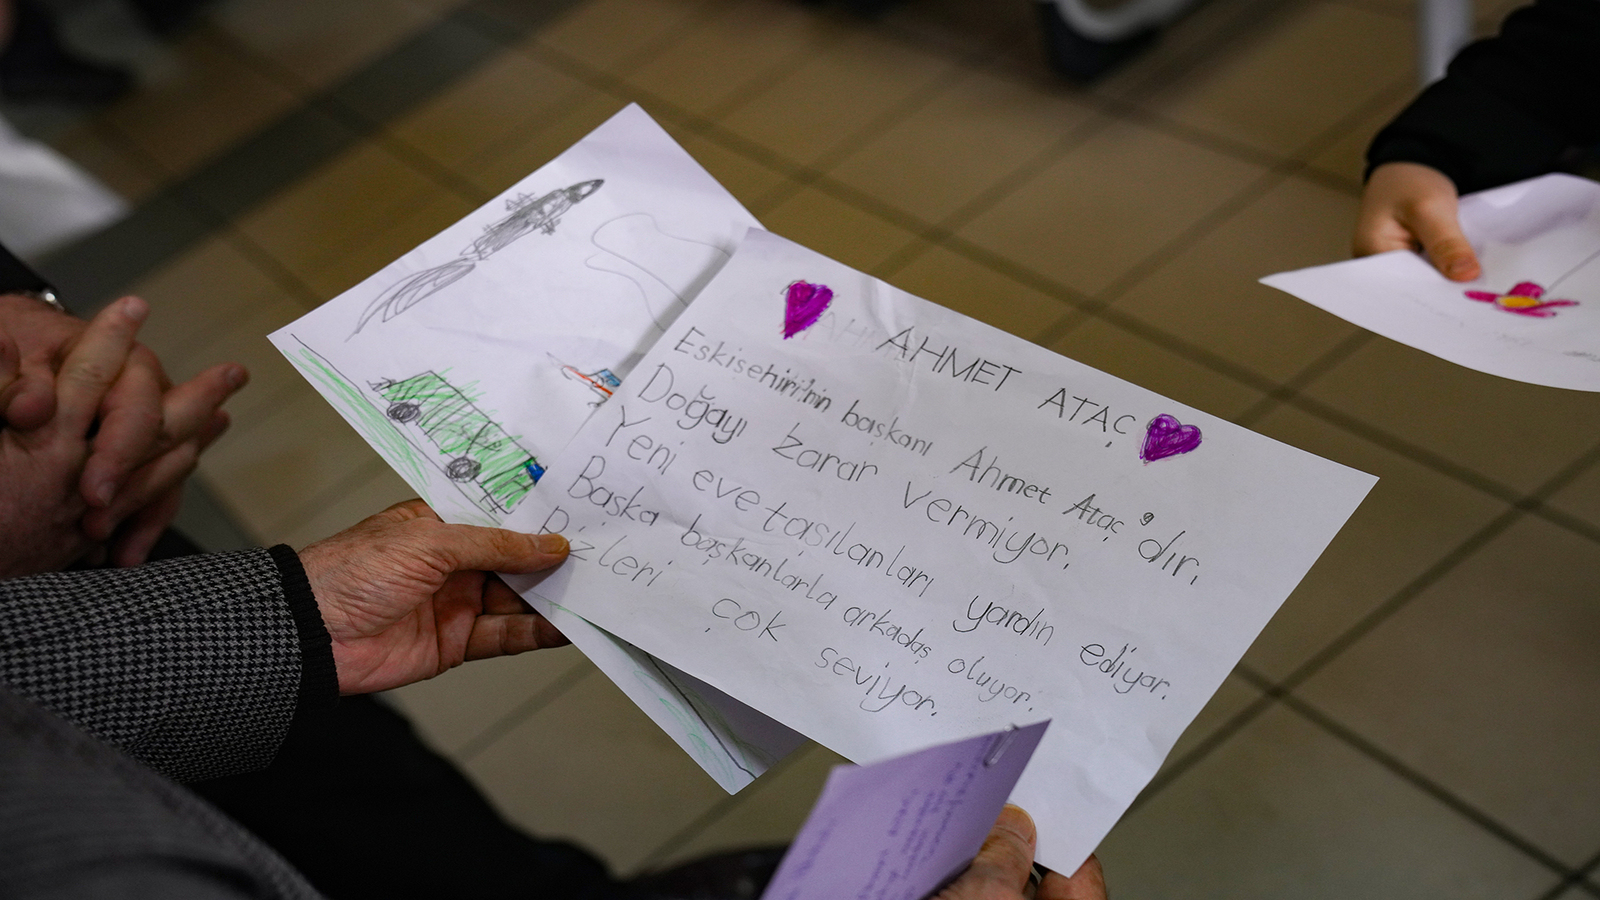 AHMET ATAÇ
Eskisehiri'nin başkanı Ahmet Ataç 'dır.
Doğayı zarar vermiyor.
Yeni eve taşılanları yardın ediyor.
Başka başkanlarla arkadaş oluyor.
Bizleri çok seviyor.